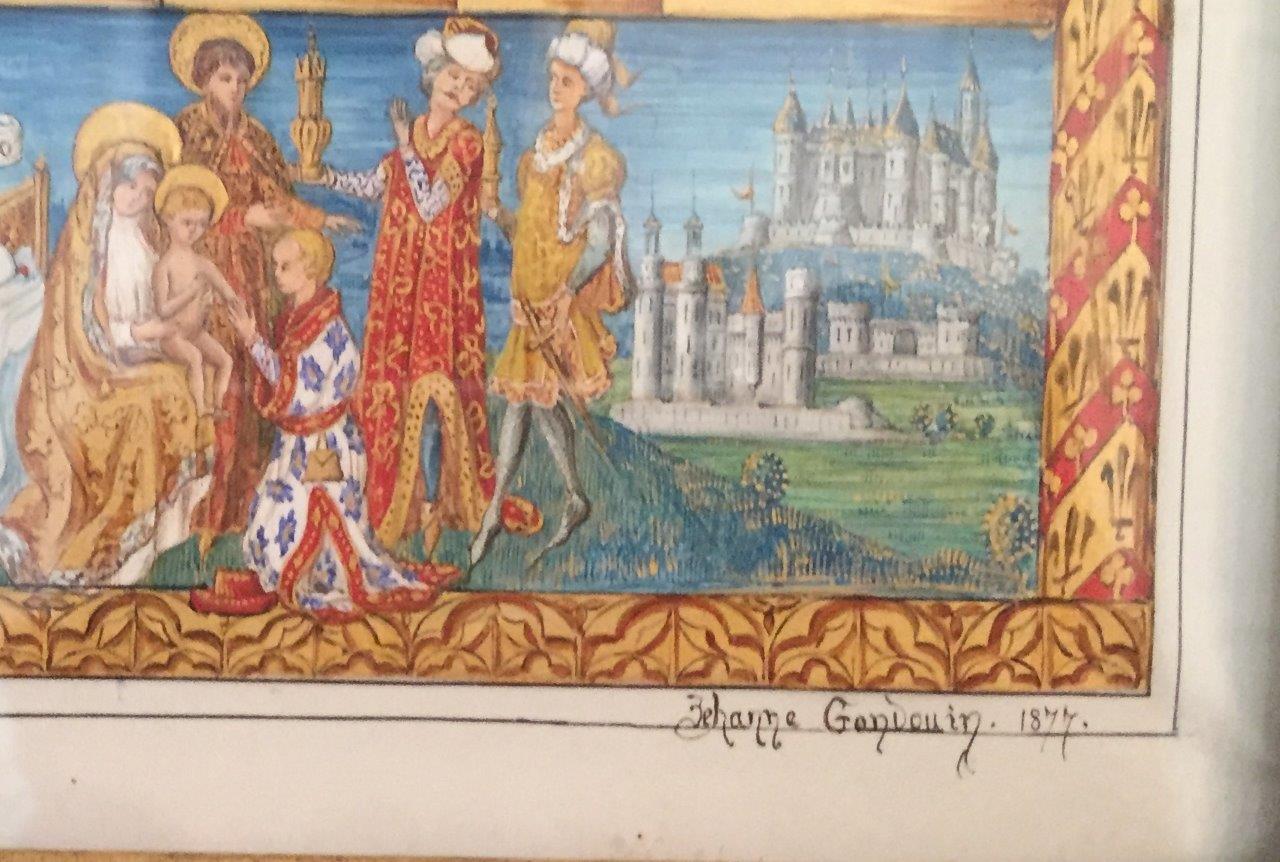 Jehanne Gondouin. 1877.